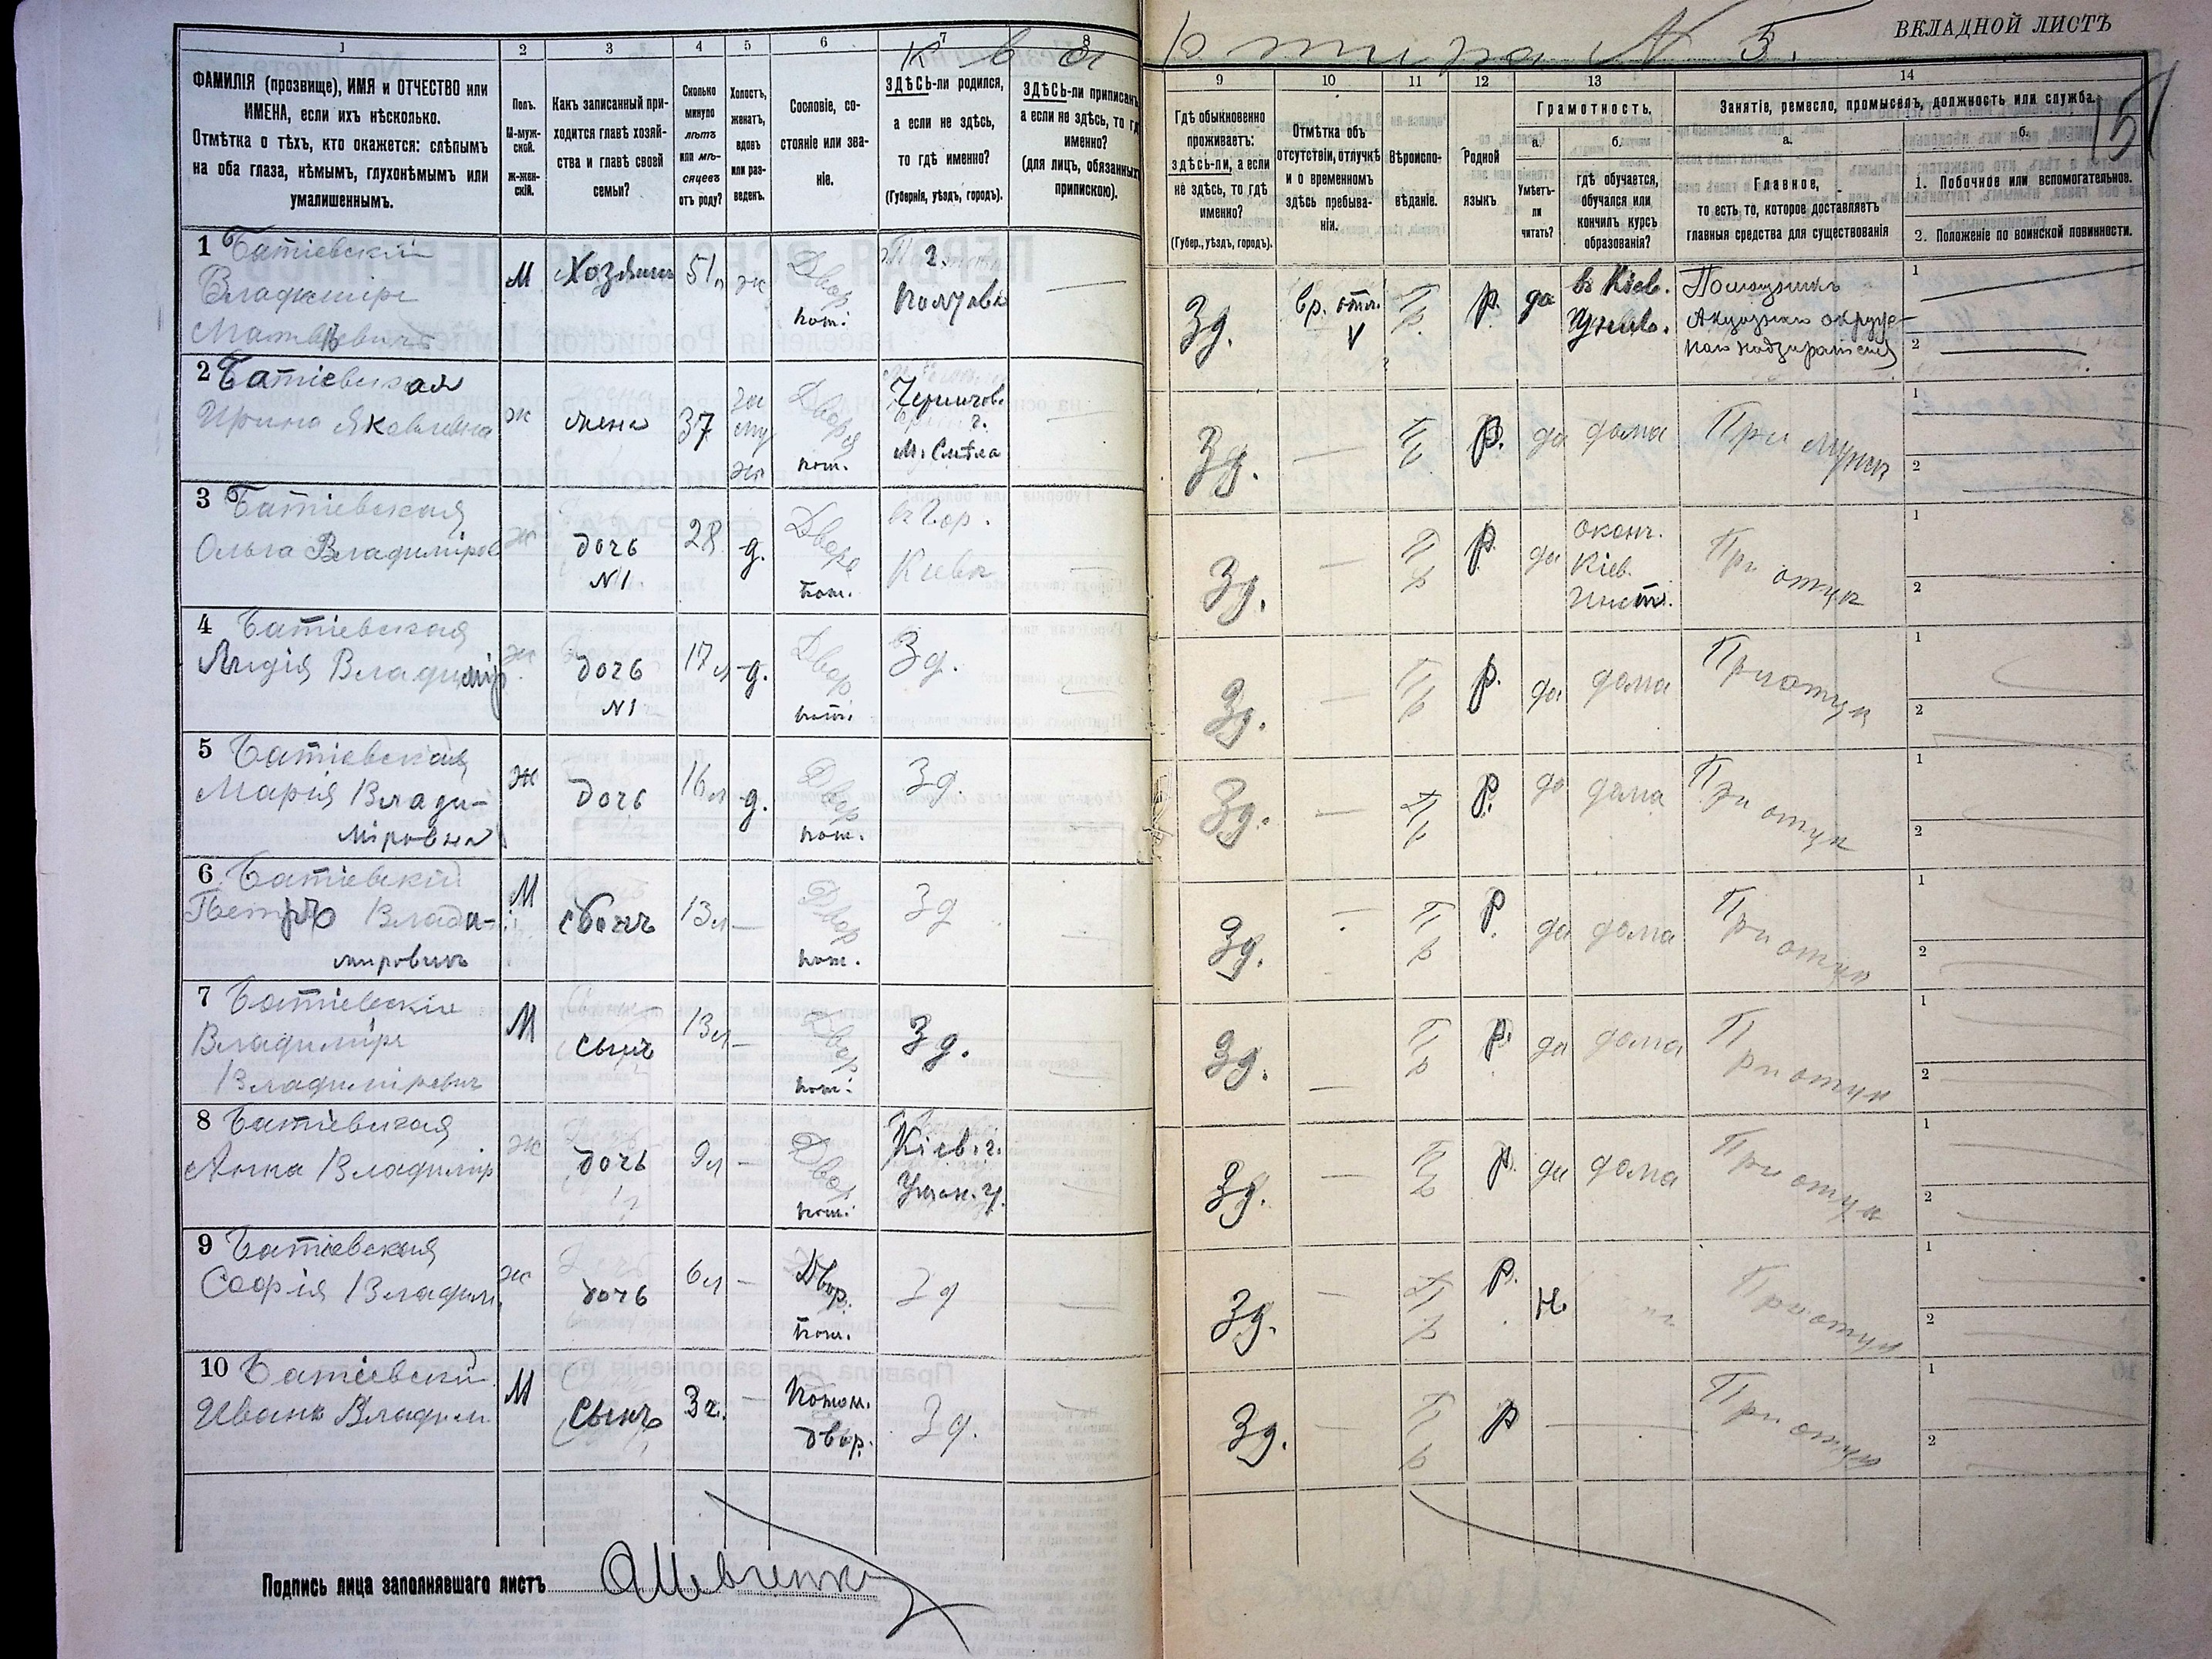 ВКЛАДНОЙ ЛИСТЪ
Квартира № 5.
1
2
3
4
5
6
7
8
9
10
11
12
13
14
ФАМИЛІЯ (прозвище), ИМЯ и ОТЧЕСТВО или
ИМЕНА, если ихъ нѣсколько.
Отмѣтка о тѣхъ, кто окажется: слѣпымъ
на оба глаза, нѣмымъ, глухонѣмымъ или
умалишеннымъ.
Полъ.
М-муж-
ской.
ж-жен-
скій.
Какъ записанный при-
ходится главѣ хозяй-
ства и главѣ своей
семьи?
Сколько
минуло
лѣтъ
или мѣ-
сяцевъ
отъ роду?
Холостъ,
женатъ,
вдовъ
или раз-
веденъ.
Сословіе, со-
стояніе или зва-
ніе.
ЗДѢСЬ-ли родился,
а если не здѣсь,
то гдѣ именно?
(Губернія, уѣздъ, городъ).
ЗДѢСЬ-ли приписанъ
а если не здѣсь, то гдѣ
именно?
(для лицъ, обязанныхъ
припискою).
Гдѣ обыкновенно
проживаетъ:
здѣсь-ли, а если
не здѣсь, то гдѣ
именно?
(Губер., уѣздъ, городъ).
Отмѣтка объ
отсутствіи, отлучкѣ
и о временномъ
здѣсь пребыва-
ніи.
Вѣроиспо-
вѣданіе.
Родной
языкъ.
Грамотность.
а.
Умѣетъ-
ли
читать?
б.
гдѣ обучается,
обучался или
кончилъ курсъ
образованія?
Занятіе, ремесло, промыселъ, должность или служба.
а.
Главное,
то есть то, которое доставляетъ
главныя средства для существованія
б.
1. Побочное или вспомогательное.
2. Положеніе по воинской повинности.
1 Батіевскій
Владиміръ
Матвѣевичъ
М
Хозяинъ
51
ж
Двор
пот.
г.
Полтава
Зд.
вр. отл.
Пр.
Р.
да
въ Кіев.
Универ.
Помощникъ
Акцизнаго окруж-
наго надзирателя
1
2
2 Батіевская
Ирина Яковлевна
ж
жена
37
за
му
жн
Дворя
пот.
Чернигов.
г.
м. Смѣла
Зд.
—
Пр
Р.
да
дома
При мужѣ
1
2
3 Батіевская
Ольга Владиміров
ж
дочь
N1
28
д.
Дворя
пот.
въ Гор.
Кіевѣ
Зд.
—
Пр
Р.
да
оконч.
Кіев.
Инст.
При отцѣ
1
2
4 Батіевская
Лидія Владимір
ж
дочь
N1
17 л
д.
Двор
пот.
Зд.
Зд.
—
Пр
Р.
да
дома
При отцѣ
1
2
5 Батіевская
Марія Влади-
міровна
ж
дочь
16 л
д.
Двор
пот.
Зд.
Зд.
—
Пр
Р.
да
дома
При отцѣ
1
2
6 Батіевскій
Петръ Влади-
мировичъ
М
сынъ
13 л
—
Двор
пот.
Зд
Зд.
—
Пр
Р.
да
дома
При отцѣ
1
2
7 Батіевскій
Владиміръ
Владиміровичъ
М
сынъ
13 л
—
Двор
пот.
Зд.
Зд.
—
Пр
Р.
да
дома
При отцѣ
1
2
8 Батіевская
Анна Владимір
ж
дочь
9 л
—
Двор
пот.
Кіев. г.
Уман. у.
Зд.
—
Пр
Р.
да
дома
При отцѣ
1
2
9 Батіевская
Софія Владим.
ж
дочь
6 л
—
Двор.
пот.
Зд
Зд.
—
Пр
Р.
Н.
При отцѣ
1
2
10 Батіевскій
Иванъ Владим
М
Сынъ
3 г.
—
Потом.
двор.
Зд.
Зд.
—
Пр
Р
—
При отцѣ
1
2
Подпись лица заполнявшаго листъ